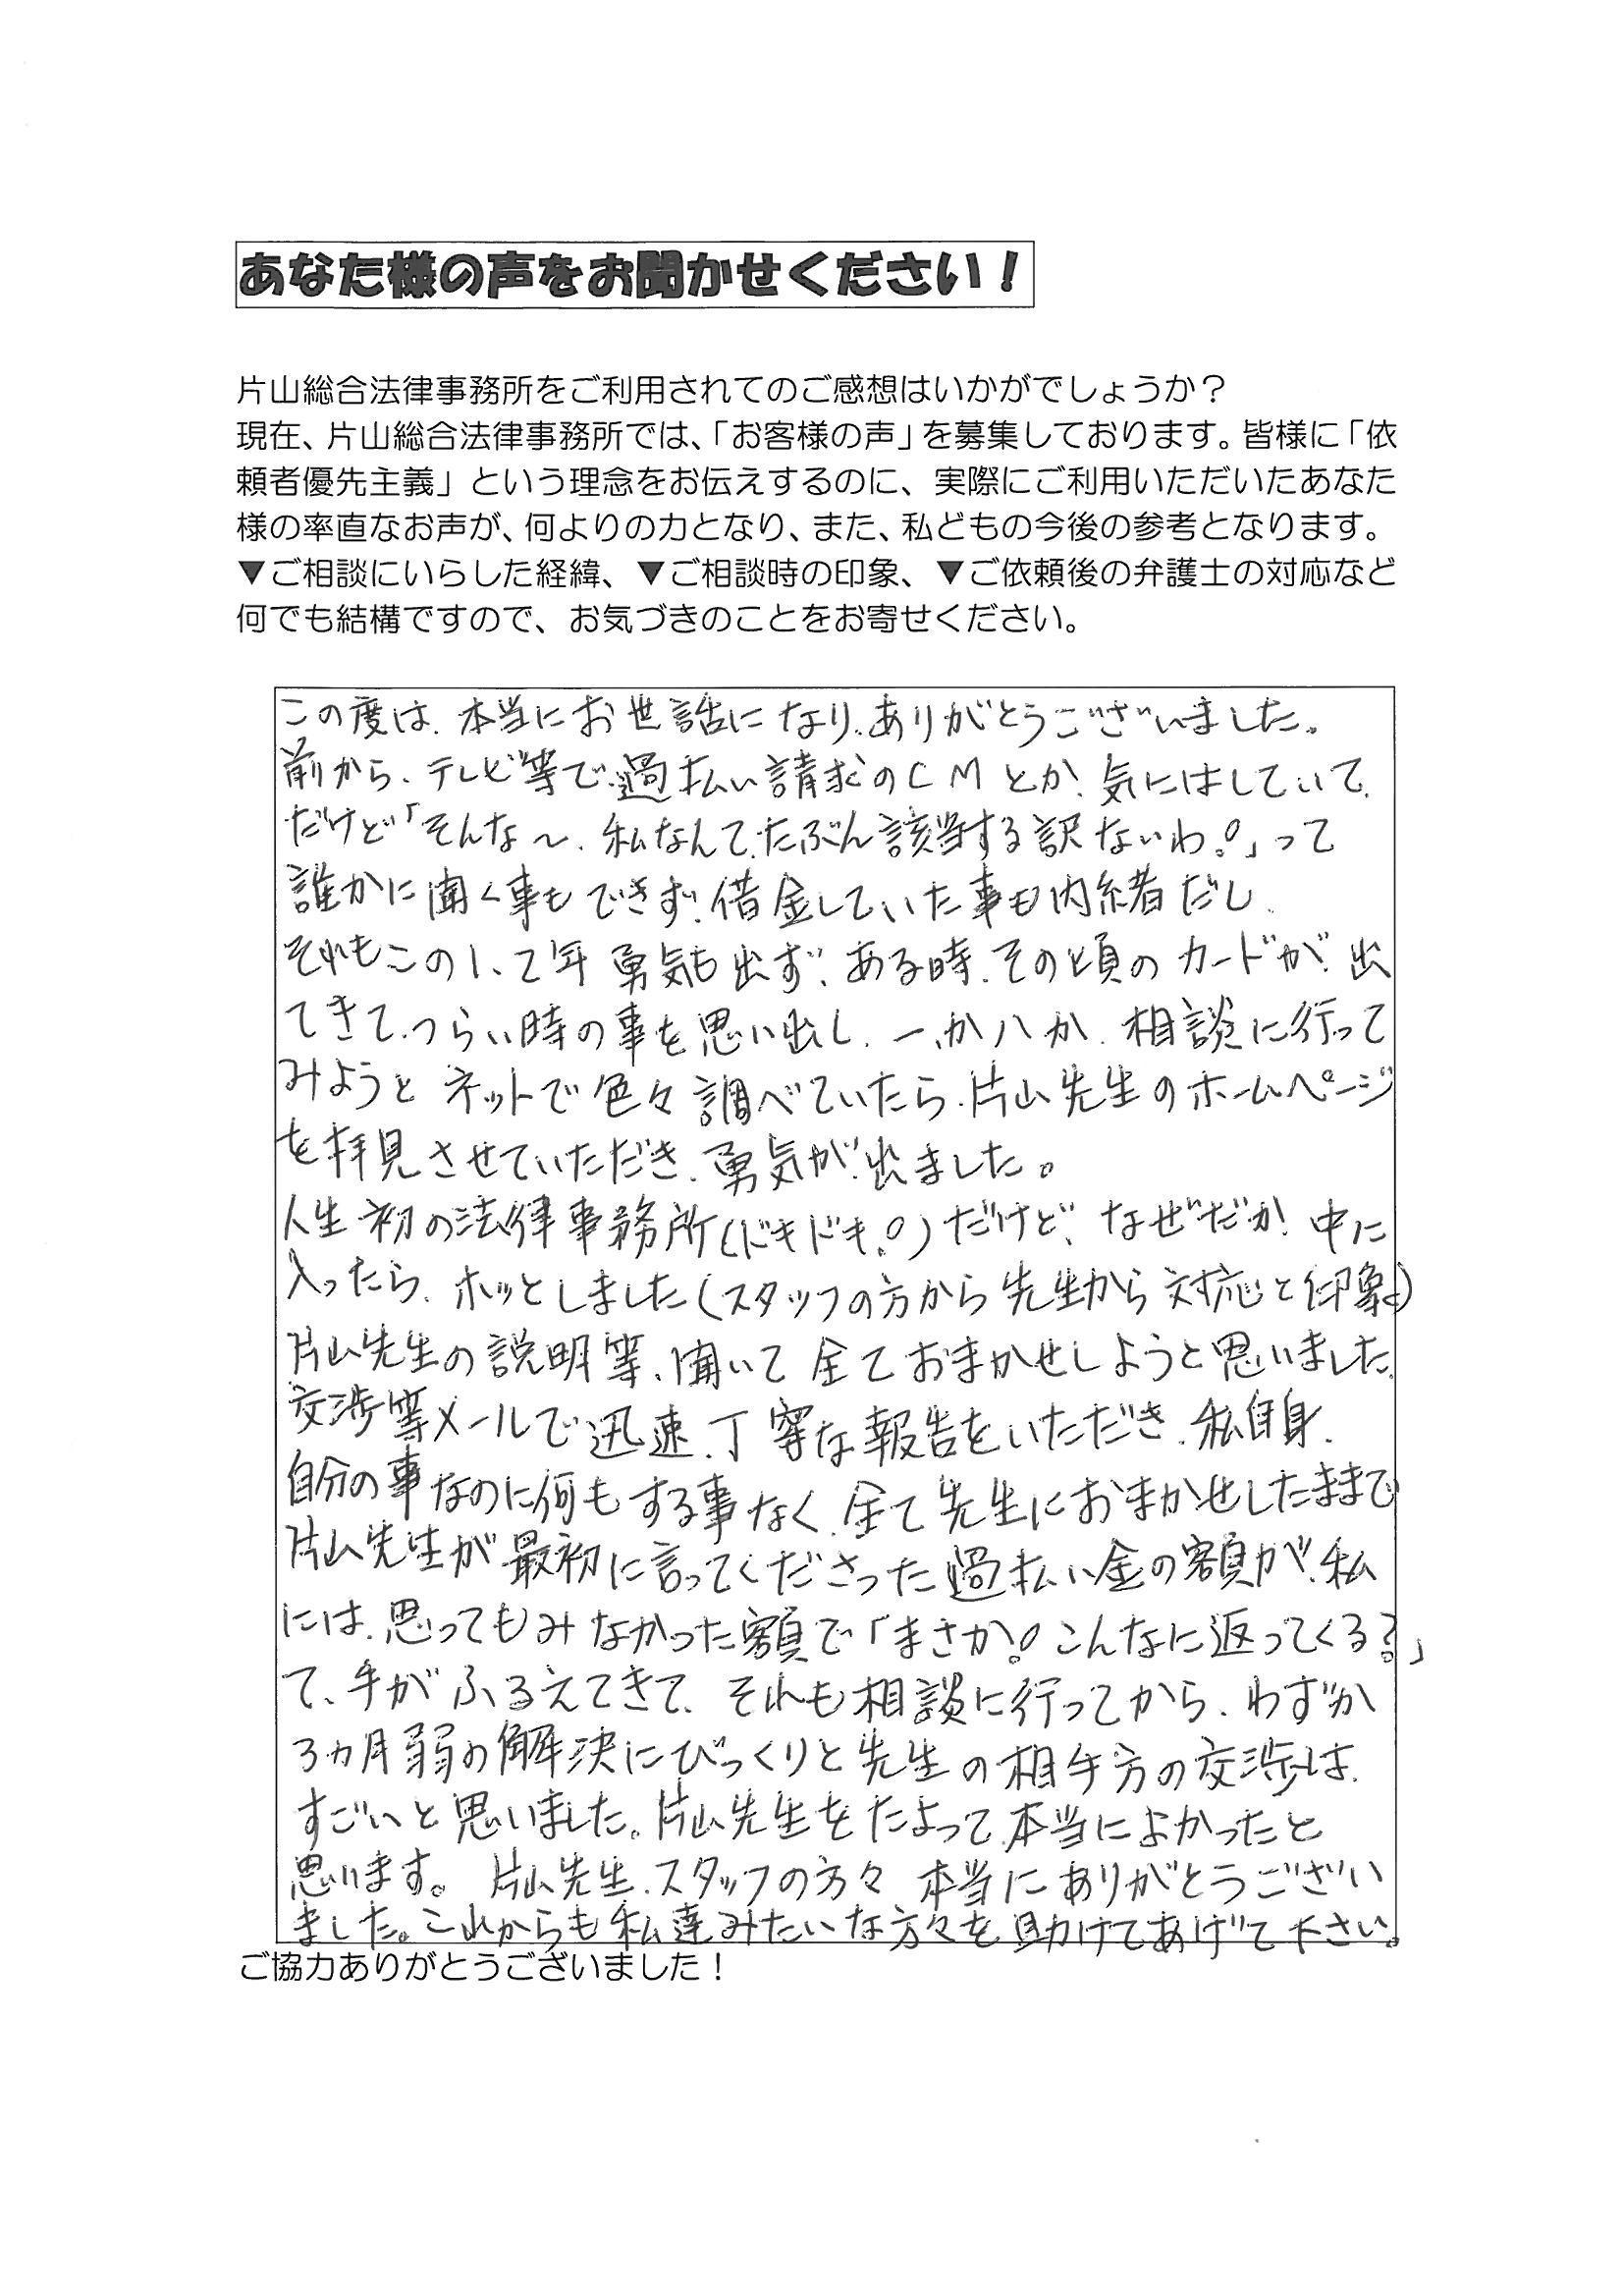 あなた様の声をお聞かせください！
片山総合法律事務所をご利用されてのご感想はいかがでしょうか？
現在、片山総合法律事務所では、「お客様の声」を募集しております。皆様に「依
頼者優先主義」という理念をお伝えするのに、実際にご利用いただいたあなた
様の率直なお声が、何よりの力となり、また、私どもの今後の参考となります。
▼ご相談にいらした経緯、▼ご相談時の印象、▼ご依頼後の弁護士の対応など
何でも結構ですので、お気づきのことをお寄せください。
この度は、本当にお世話になり、ありがとうございました。
前から、テレビ等で、過払い請求のCMとか、気にはしていて、
だけど「そんな〜、私なんて、たぶん該当する訳ないわ！」って
誰かに聞く事もできず、借金していた事も内緒だし、
それもこの1、2年勇気も出ず、ある時、その頃のカードが、出
てきて、つらい時の事を思い出し、一か八か、相談に行って
みようとネットで色々調べていたら、片山先生のホームページ
を拝見させていただき、勇気が、出ました。
人生初の法律事務所(ドキドキ！)だけど、なぜだか、中に
入ったら、ホッとしました(スタッフの方から先生から対応と印象)
片山先生の説明等、聞いて全ておまかせしようと思いました。
交渉等メールで迅速、丁寧な報告をいただき、私自身、
自分の事なのに何もする事なく、全て先生におまかせしたままで
片山先生が最初に言ってくださった過払い金の額が、私
には、思ってもみなかった額で「まさか！こんなに返ってくる？」
て、手がふるえてきて、それも相談に行ってから、わずか
3ヵ月弱の解決にびっくりと先生の相手方の交渉は、
すごいと思いました。片山先生をたよって、本当によかったと
思います。片山先生、スタッフの方々本当にありがとうござい
ました。これからも私達みたいな方々を助けてあげて下さい。
ご協力ありがとうございました！